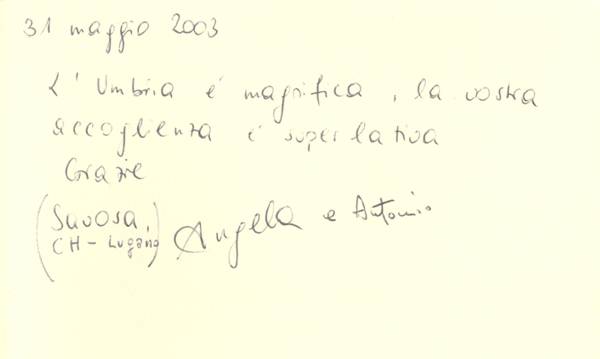 31 maggio 2003
L' Umbria é magnifica, la vostra
accoglienza é superlativa
Grazie
(Savosa,
CH - Lugano) Angela e Antonio